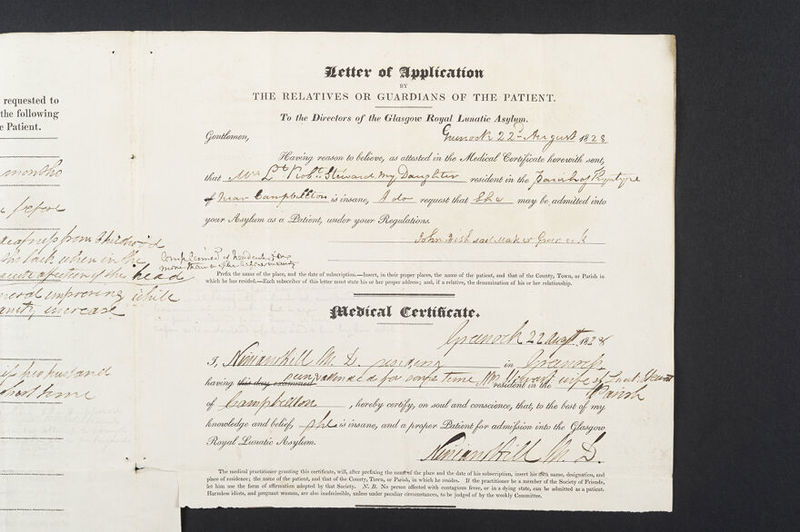 requested to
the following
e Patient.
months
before
deafness from Childhood
the back when in the
acute affection of the head
improving while
increase
husband
short time
Complained of headache for
more than a
Letter of Application
BY
THE RELATIVES OR GUARDIANS OF THE PATIENT.
To the Directors of the Glasgow Royal Lunatic Asylum.
Gentlemen, Greenock 22d August 1828
Having reason to believe, as attested in the Medical Certificate herewith sent,
that Mrs Lt Robt Steward my Daughter resident in the parish of
of near Campbellton is insane, I do request that She may be admitted into
your Asylum as a Patient, under your Regulations.
John Fish sailmaker Greenock
Prefix the name of the place, and the date of subscription.—Insert, in their proper places, the name of the patient, and that of the County, Town, or Parish in
which he has resided.—Each subscriber of this letter must state his or her proper address; and, if a relative, the denomination of his or her relationship.
Medical Certificate.
Greenock 22 August 1828
I, Ninian Hill M. D. residing in Greenock
having this day examined attended for some time Mrs Stewart wife of Lieut Stewart resident in the Parish
of Campbellton, hereby certify, on soul and conscience, that, to the best of my
knowledge and belief, she is insane, and a proper Patient for admission into the Glasgow
Royal Lunatic Asylum.
Ninian Hill M. D.
The medical practitioner granting this certificate, will, after prefixing the name of the place and the date of his subscription, insert his own name, designation, and
place of residence; the name of the patient, and that of the County, Town, or Parish, in which he resides. If the practitioner be a member of the Society of Friends,
let him use the form of affirmation adopted by that Society. N. B. No person affected with contagious fever, or in a dying state, can be admitted as a patient.
Harmless idiots, and pregnant women, are also inadmissible, unless under peculiar circumstances, to be judged of by the weekly Committee.